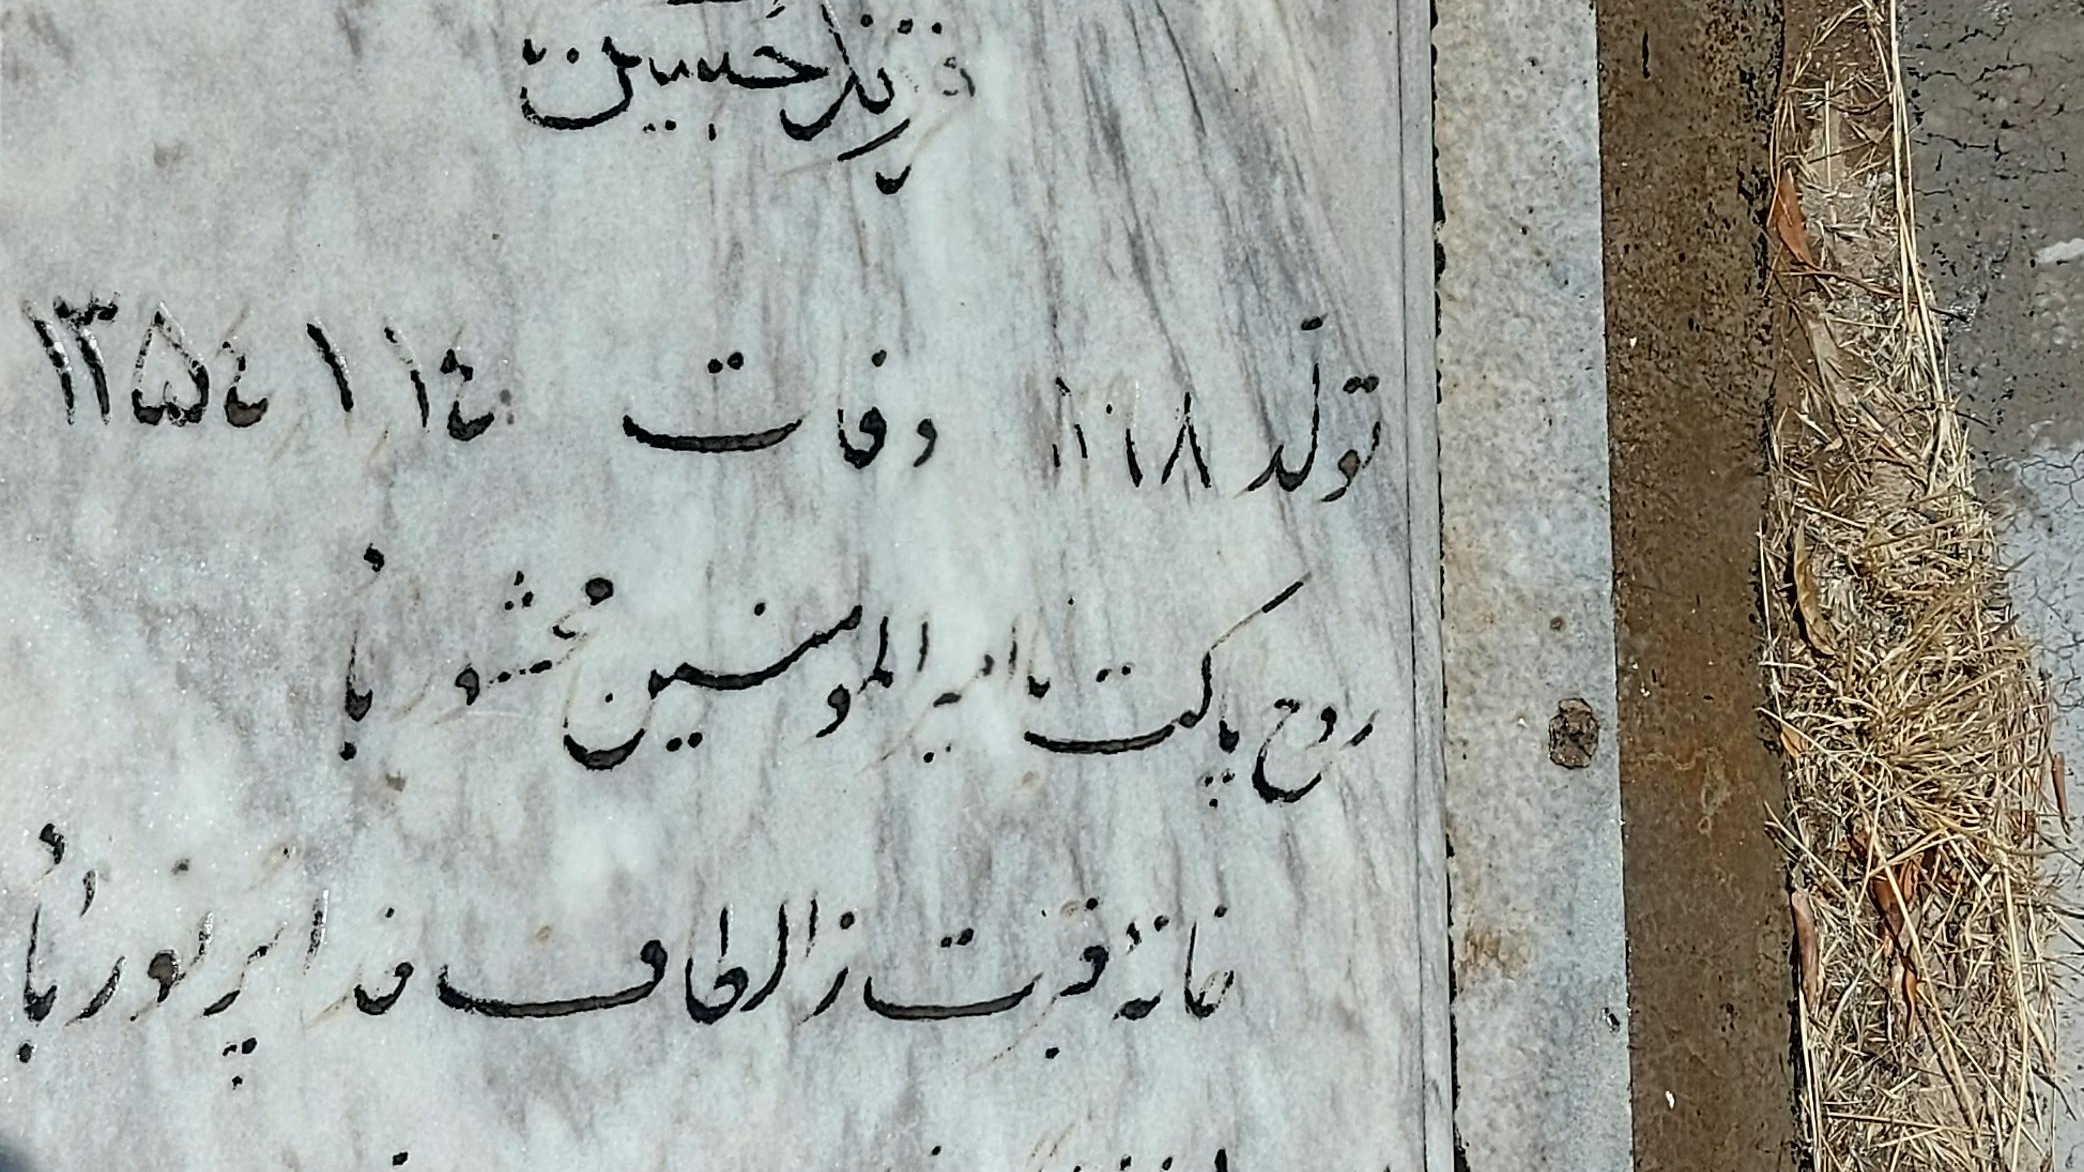 فرزند حسین
تولد وفات ۱۳۵۴/۱/۱۴
روح پاکت با امیرالمومنین محشور باد
خانهٔ قبرت ز الطاف خدا پر نور باد